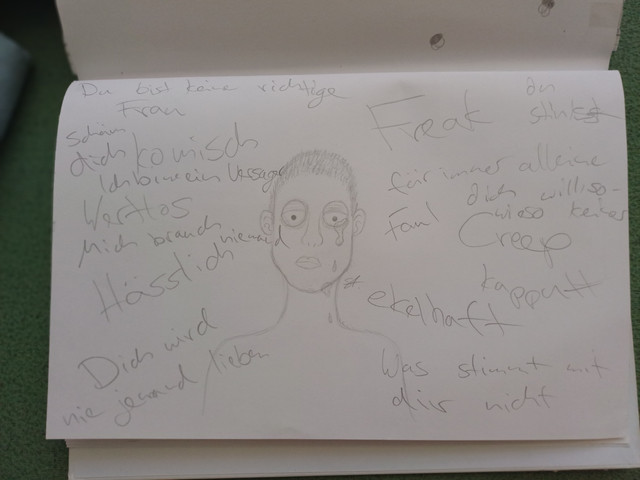 Du bist keine richtige
Frau
Schäm
dich
komisch
Ich bin ein Versager
Wertlos
Mich brauch niemand
Hässlich
Dich wird
nie jemand lieben
Freak
du
stinkst
für immer alleine
dich will so-
wieso keiner
Faul
Creep
kaputt
ekelhaft
Was stimmt mit
dir nicht